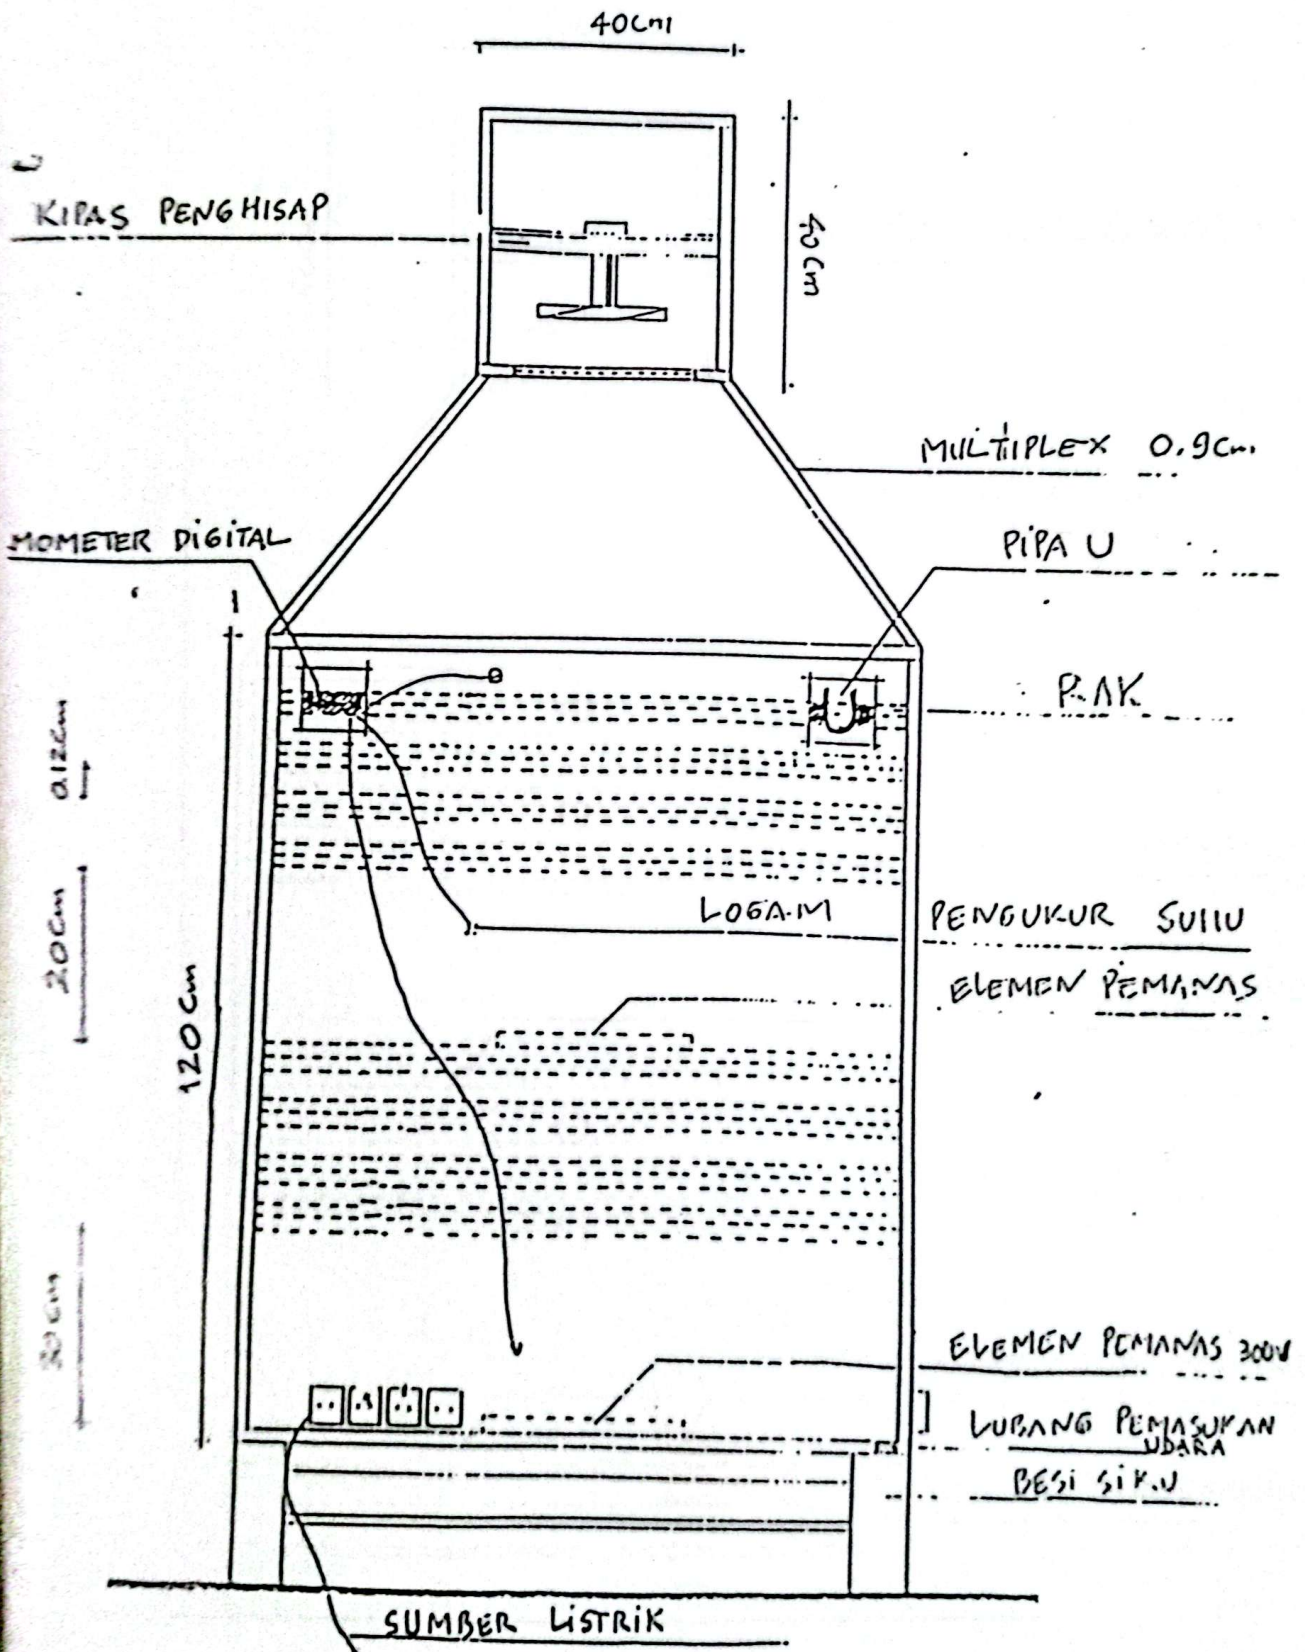 40cm
KIPAS PENGHISAP
40cm
MULTIPLEX 0.9cm
MOMETER DIGITAL
PIPA U
RAK
20cm
120cm
LOGAM PENGUKUR SUHU
ELEMEN PEMANAS
30cm
ELEMEN PEMANAS
LUBANG PEMASUKAN
UDARA
BESI SIKU
SUMBER LISTRIK